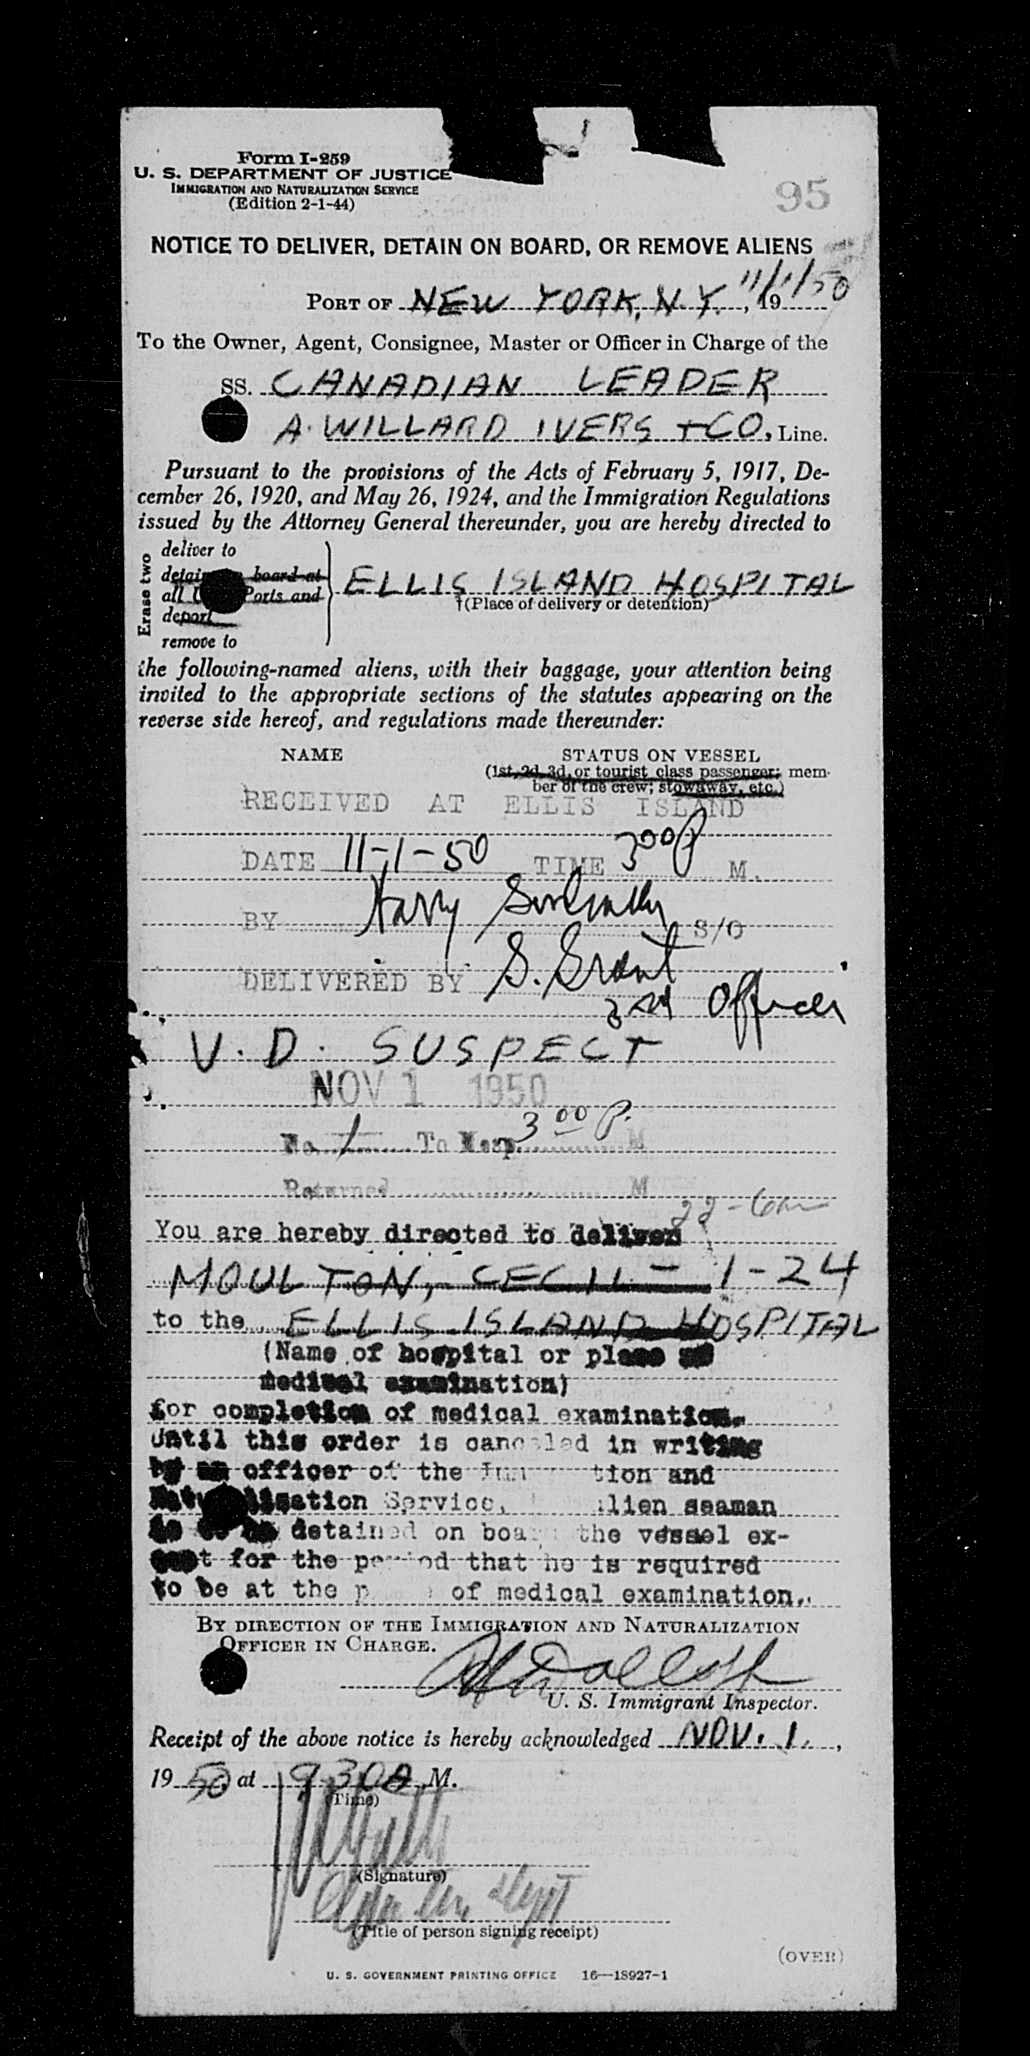 Form I-259
U. S. DEPARTMENT OF JUSTICE
IMMIGRATION AND NATURALIZATION SERVICE
(Edition 2-1-44)
95
NOTICE TO DELIVER, DETAIN ON BOARD, OR REMOVE ALIENS
PORT OF NEW YORK, N.Y. 11/1/50, 19
To the Owner, Agent, Consignee, Master or Officer in Charge of the
SS. CANADIAN LEADER
A. WILLARD IVERS + CO, Line.
Pursuant to the provisions of the Acts of February 5, 1917, De-
cember 26, 1920, and May 26, 1924, and the Immigration Regulations
issued by the Attorney General thereunder, you are hereby directed to
Erase two
deliver to
board at
all Ports and
deport
remove to
ELLIS ISLAND HOSPITAL
†(Place of delivery or detention)
the following-named aliens, with their baggage, your attention being
invited to the appropriate sections of the statutes appearing on the
reverse side hereof, and regulations made thereunder:
NAME STATUS ON VESSEL
(1st, 2d, 3d, or tourist class passenger; mem-
ber of the crew; stowaway, etc.)
RECEIVED AT ELLIS ISLAND
DATE 11-1-50 TIME 3 00 P M.
BY Harry S/O
DELIVERED BY S. Grant
3rd Officer
V. D. SUSPECT
NOV 1 1950
No. 1 To Hosp. 3 00 P. M
Returned M
You are hereby directed to deliver
MOULTON, CECIL - 1-24
to the ELLIS ISLAND HOSPITAL
(Name of hospital or place of
medical examination)
for completion of medical examination.
Until this order is canceled in writing
by an officer of the tion and
Service, alien seaman
detained on board the vessel ex-
cept for the period that he is required
to be at the of medical examination.
BY DIRECTION OF THE IMMIGRATION AND NATURALIZATION
OFFICER IN CHARGE.
U. S. Immigrant Inspector.
Receipt of the above notice is hereby acknowledged NOV. 1,
19 50 at 9 30 A M.
(Time)
(Signature)
(Title of person signing receipt)
(OVER)
U. S. GOVERNMENT PRINTING OFFICE 16—18927-1